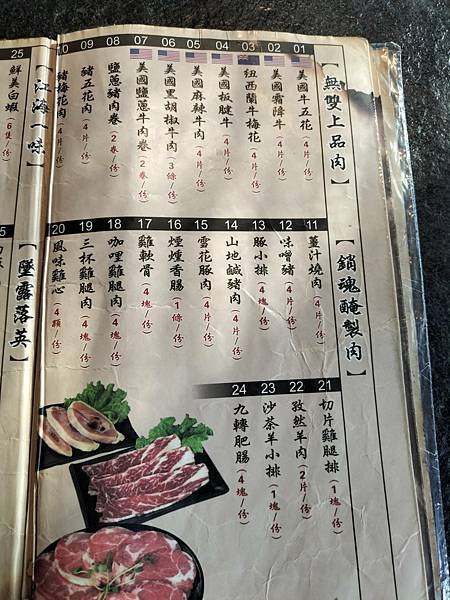 【無雙上品肉】
01 美國牛五花(4片/份)
02 美國霜降牛(4片/份)
03 紐西蘭牛梅花(4片/份)
04 美國板腱牛(4片/份)
05 美國麻辣牛肉(4片/份)
06 美國黑胡椒牛肉(3條/份)
07 美國鹽蔥牛肉卷(2卷/份)
08 鹽蔥豬肉卷(2卷/份)
09 豬五花肉(4片/份)
10 豬梅花肉(4片/份)
【銷魂醃製肉】
11 薑汁燒肉(4片/份)
12 味噌豬(4片/份)
13 豚小排(4片/份)
14 山地鹹豬肉(4片/份)
15 雪花豚肉(4片/份)
16 煙燻香腸(1條/份)
17 雞軟骨(4塊/份)
18 咖哩雞腿肉(4塊/份)
19 三杯雞腿肉(4塊/份)
20 風味雞心(4顆/份)
21 切片雞腿排(1塊/份)
22 孜然羊肉(2片/份)
23 沙茶羊小排(1塊/份)
24 九轉肥腸(4塊/份)
【江海一味】
25 鮮美白蝦(6隻/份)
【墜露落英】